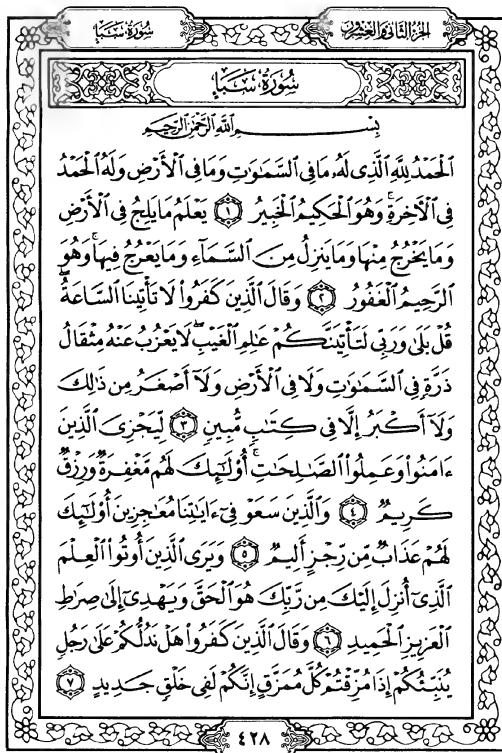 الجزء الثاني والعشرون
سُورَةُ سَبَإٍ
سُورَةُ سَبَإٍ
بِسْمِ اللَّهِ الرَّحْمَٰنِ الرَّحِيمِ
الْحَمْدُ لِلَّهِ الَّذِي لَهُ مَا فِي السَّمَٰوَٰتِ وَمَا فِي الْأَرْضِ وَلَهُ الْحَمْدُ
فِي الْأَخِرَةِ ۚ وَهُوَ الْحَكِيمُ الْخَبِيرُ ١ يَعْلَمُ مَا يَلِجُ فِي الْأَرْضِ
وَمَا يَخْرُجُ مِنْهَا وَمَا يَنزِلُ مِنَ السَّمَآءِ وَمَا يَعْرُجُ فِيهَا ۚ وَهُوَ
الرَّحِيمُ الْغَفُورُ ٢ وَقَالَ الَّذِينَ كَفَرُوا لَا تَأْتِينَا السَّاعَةُ ۖ
قُلْ بَلَىٰ وَرَبِّي لَتَأْتِيَنَّكُمْ عَٰلِمِ الْغَيْبِ ۖ لَا يَعْزُبُ عَنْهُ مِثْقَالُ
ذَرَّةٍ فِي السَّمَٰوَٰتِ وَلَا فِي الْأَرْضِ وَلَآ أَصْغَرُ مِن ذَٰلِكَ
وَلَآ أَكْبَرُ إِلَّا فِي كِتَٰبٍ مُّبِينٍ ٣ لِّيَجْزِيَ الَّذِينَ
ءَامَنُوا وَعَمِلُوا الصَّٰلِحَٰتِ ۚ أُولَٰٓئِكَ لَهُم مَّغْفِرَةٌ وَرِزْقٌ
كَرِيمٌ ٤ وَالَّذِينَ سَعَوْ فِيٓ ءَايَٰتِنَا مُعَٰجِزِينَ أُولَٰٓئِكَ
لَهُمْ عَذَابٌ مِّن رِّجْزٍ أَلِيمٌ ٥ وَيَرَى الَّذِينَ أُوتُوا الْعِلْمَ
الَّذِيٓ أُنزِلَ إِلَيْكَ مِن رَّبِّكَ هُوَ الْحَقَّ وَيَهْدِيٓ إِلَىٰ صِرَٰطِ
الْعَزِيزِ الْحَمِيدِ ٦ وَقَالَ الَّذِينَ كَفَرُوا هَلْ نَدُلُّكُمْ عَلَىٰ رَجُلٍ
يُنَبِّئُكُمْ إِذَا مُزِّقْتُمْ كُلَّ مُمَزَّقٍ إِنَّكُمْ لَفِي خَلْقٍ جَدِيدٍ ٧
٤٢٨